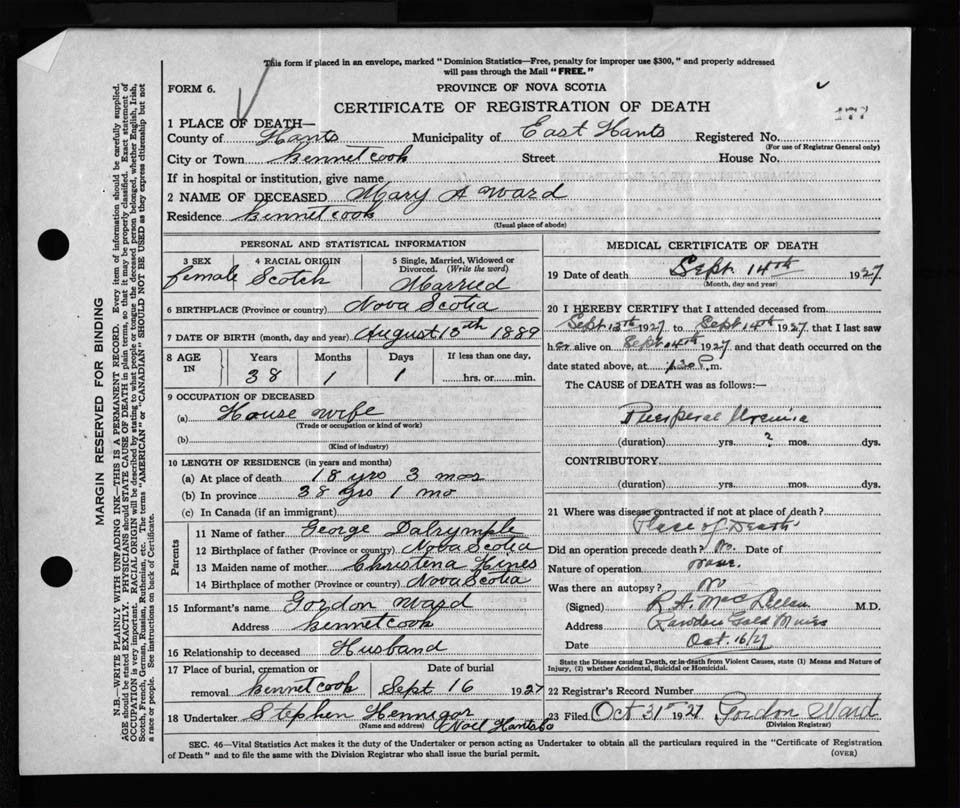 This form if placed in an envelope, marked "Dominion Statistics—Free, penalty for improper use $300," and properly addressed
will pass through the Mail "FREE."
FORM 6.
PROVINCE OF NOVA SCOTIA
177
CERTIFICATE OF REGISTRATION OF DEATH
1 PLACE OF DEATH—
County of Hants Municipality of East Hants Registered No.
(For use of Registrar General only)
City or Town Kennetcook Street House No.
If in hospital or institution, give name
2 NAME OF DECEASED Mary A Ward
Residence Kennetcook
(Usual place of abode)
PERSONAL AND STATISTICAL INFORMATION
3 SEX 4 RACIAL ORIGIN 5 Single, Married, Widowed or
Divorced. (Write the word)
female Scotch Married
6 BIRTHPLACE (Province or country) Nova Scotia
7 DATE OF BIRTH (month, day and year) August 13th 1889
8 AGE IN Years Months Days If less than one day,
38 1 1 hrs. or min.
9 OCCUPATION OF DECEASED
(a) House wife
(Trade or occupation or kind of work)
(b)
(Kind of industry)
10 LENGTH OF RESIDENCE (in years and months)
(a) At place of death 18 yrs 3 mos
(b) In province 38 yrs 1 mo
(c) In Canada (if an immigrant)
Parents
11 Name of father George Dalrymple
12 Birthplace of father (Province or country) Nova Scotia
13 Maiden name of mother Christena Hines
14 Birthplace of mother (Province or country) Nova Scotia
15 Informant's name Gordon Ward
Address Kennetcook
16 Relationship to deceased Husband
17 Place of burial, cremation or Date of burial
removal Kennetcook Sept 16 1927
18 Undertaker Stephen Hennigar
(Name and address) Noel Hants Co
MEDICAL CERTIFICATE OF DEATH
19 Date of death Sept. 14th 1927
(Month, day and year)
20 I HEREBY CERTIFY that I attended deceased from
Sept 13th 1927 to Sept 14th 1927, that I last saw
her alive on Sept 14th 1927 and that death occurred on the
date stated above, at 1.30 P. m.
The CAUSE of DEATH was as follows:—
Puerperal Uremia
(duration) yrs. ? mos. dys.
CONTRIBUTORY
(duration) yrs. mos. dys.
21 Where was disease contracted if not at place of death?
Place of Death
Did an operation precede death? No. Date of
Nature of operation None.
Was there an autopsy? No
(Signed) R. A. McLellan M.D.
Address Rawdon Gold Mines
Date Oct. 16/27
State the Disease causing Death, or in death from Violent Causes, state (1) Means and Nature of
Injury, (2) whether Accidental, Suicidal or Homicidal.
22 Registrar's Record Number
23 Filed Oct 31st 1927 Gordon Ward
(Division Registrar)
SEC. 46—Vital Statistics Act makes it the duty of the Undertaker or person acting as Undertaker to obtain all the particulars required in the "Certificate of Registration
of Death" and to file the same with the Division Registrar who shall issue the burial permit. (OVER)
MARGIN RESERVED FOR BINDING
N.B.—WRITE PLAINLY WITH UNFADING INK—THIS IS A PERMANENT RECORD. Every item of information should be carefully supplied.
AGE should be stated EXACTLY. PHYSICIANS should STATE CAUSE OF DEATH in plain terms, so that it may be properly classified. Exact statement of
OCCUPATION is very important. RACIAL ORIGIN will be described by stating to what people or tongue the deceased person belonged, whether English, Irish,
Scotch, French, German, Russian, Ruthenian, etc. The terms "AMERICAN" or "CANADIAN" SHOULD NOT BE USED as they express citizenship but not
a race or people. See instructions on back of Certificate.